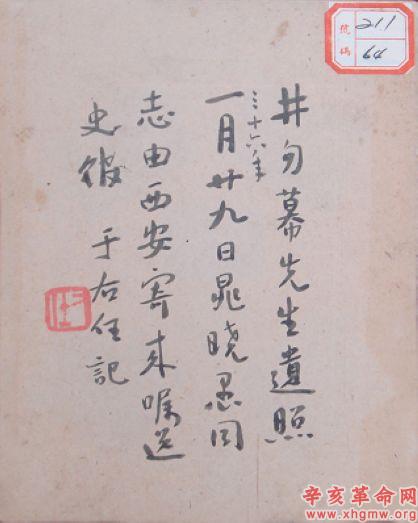 井勿幕先生遺照
三十六年
一月廿九日晁曉愚同
志由西安寄来囑送
史館 于右任記
號碼
211
64
辛亥革命网
www.xhgmw.org